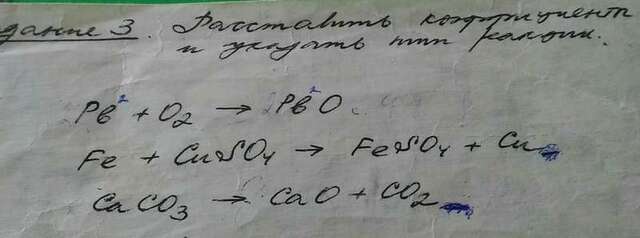 дание 3. Расставить коэффициент
и указать тип реакции.
Pb² + O₂ → 2PbO
Fe + CuSO₄ → FeSO₄ + Cu
CaCO₃ → CaO + CO₂